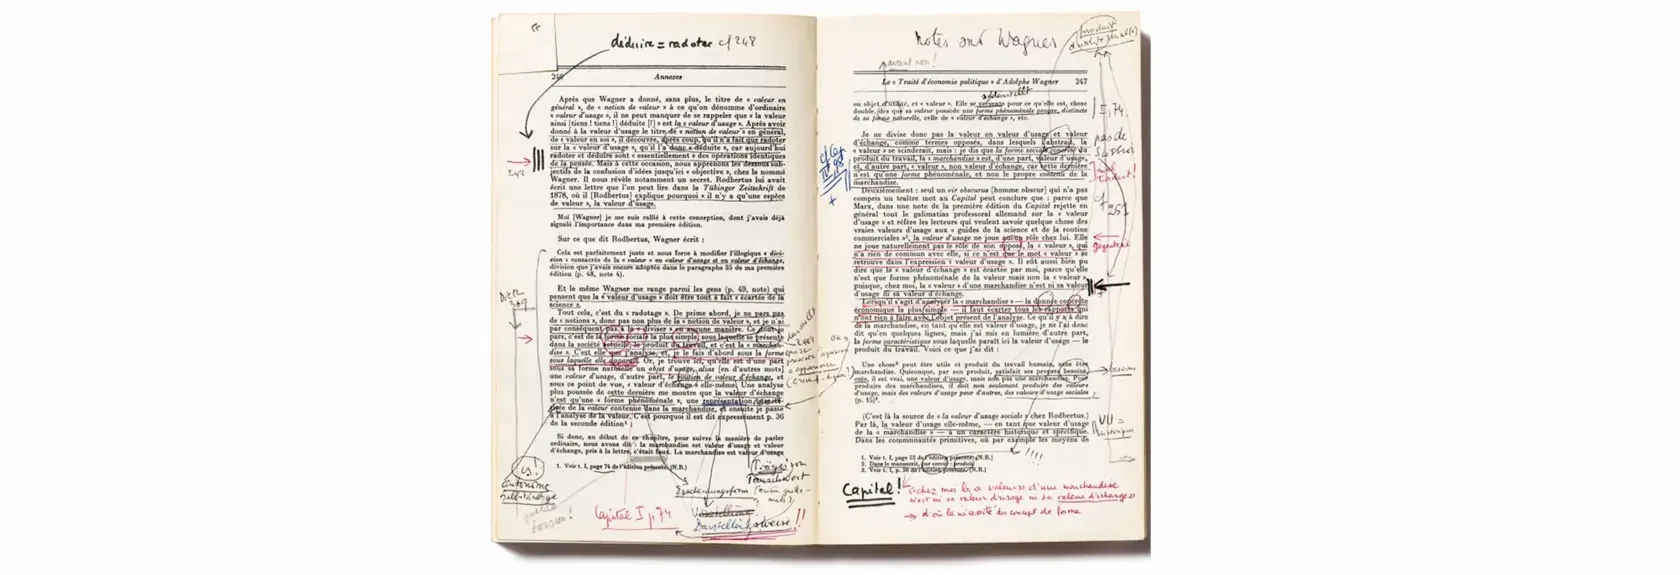 déduire = radoter cf 248
246 Annexes
Après que Wagner a donné, sans plus, le titre de « valeur en
général », de « notion de valeur » à ce qu'on dénomme d'ordinaire
« valeur d'usage », il ne peut manquer de se rappeler que « la valeur
ainsi [tiens ! tiens !] déduite [!] » est la « valeur d'usage ». Après avoir
donné à la valeur d'usage le titre de « notion de valeur » en général,
de « valeur en soi », il découvre, après coup, qu'il n'a fait que radoter
sur la « valeur d'usage », qu'il l'a donc « déduite », car aujourd'hui
radoter et déduire sont « essentiellement » des opérations identiques
de la pensée. Mais à cette occasion, nous apprenons les dessous sub-
jectifs de la confusion d'idées jusqu'ici « objective », chez le nommé
Wagner. Il nous révèle notamment un secret. Rodbertus lui avait
écrit une lettre que l'on peut lire dans la Tübinger Zeitschrift de
1878, où il [Rodbertus] explique pourquoi « il n'y a qu'une espèce
de valeur », la valeur d'usage.
Moi [Wagner] je me suis rallié à cette conception, dont j'avais déjà
signalé l'importance dans ma première édition.
Sur ce que dit Rodbertus, Wagner écrit :
Cela est parfaitement juste et nous force à modifier l'illogique « divi-
sion » consacrée de la « valeur » en valeur d'usage et en valeur d'échange,
division que j'avais encore adoptée dans le paragraphe 35 de ma première
édition (p. 48, note 4).
Et le même Wagner me range parmi les gens (p. 49, note) qui
pensent que la « valeur d'usage » doit être tout à fait « écartée de la
science ».
Tout cela, c'est du « radotage ». De prime abord, je ne pars pas
de « notions », donc pas non plus de la « notion de valeur », et je n'ai
par conséquent pas à la « diviser » en aucune manière. Ce dont je
pars, c'est de la forme sociale la plus simple, sous laquelle se présente
dans la société actuelle, le produit du travail, et c'est la « marchan-
dise ». C'est elle que j'analyse, et, je le fais d'abord sous la forme
sous laquelle elle apparaît. Or, je trouve ici, qu'elle est d'une part
sous sa forme naturelle un objet d'usage, alias [en d'autres mots]
une valeur d'usage, d'autre part, le position de valeur d'échange, et
sous ce point de vue, « valeur d'échange » elle-même. Une analyse
plus poussée de cette dernière me montre que la valeur d'échange
n'est qu'une « forme phénoménale », une représentation
de la valeur contenue dans la marchandise, et ensuite je passe
à l'analyse de la valeur. C'est pourquoi il est dit expressément p. 36
de la seconde édition¹
Si donc, au début de ce chapitre, pour suivre la manière de parler
ordinaire, nous avons dit : la marchandise est valeur d'usage et valeur
d'échange, pris à la lettre, c'était faux. La marchandise est valeur d'usage
1. Voir t. I, page 74 de l'édition présente. (N.R.)
Erscheinungsform
Capital I p 74
Notes sur Wagner
Le « Traité d'économie politique » d'Adolphe Wagner 247
ou objet d'utilité, et « valeur ». Elle se présente pour ce qu'elle est, chose
double, dès que sa valeur possède une forme phénoménale propre, distincte
de sa forme naturelle, celle de « valeur d'échange », etc.
Je ne divise donc pas la valeur en valeur d'usage et valeur
d'échange, comme termes opposés, dans lesquels l'abstrait, la
« valeur » se scinderait, mais : je dis que la forme sociale concrète du
produit du travail, la « marchandise » est, d'une part, valeur d'usage,
et, d'autre part, « valeur », non valeur d'échange, car cette dernière
n'est qu'une forme phénoménale, et non le propre contenu de la
marchandise.
Deuxièmement : seul un vir obscurus [homme obscur] qui n'a pas
compris un traître mot au Capital peut conclure que : parce que
Marx, dans une note de la première édition du Capital rejette en
général tout le galimatias professoral allemand sur la « valeur
d'usage » et réfère les lecteurs qui veulent savoir quelque chose des
vraies valeurs d'usage aux « guides de la science et de la routine
commerciales »¹, la valeur d'usage ne joue aucun rôle chez lui. Elle
ne joue naturellement pas le rôle de son opposé, la « valeur », qui
n'a rien de commun avec elle, si ce n'est que le mot « valeur » se
retrouve dans l'expression « valeur d'usage ». Il eût aussi bien pu
dire que la « valeur d'échange » est écartée par moi, parce qu'elle
n'est que forme phénoménale de la valeur mais non la « valeur »,
puisque, chez moi, la « valeur » d'une marchandise n'est ni sa valeur
d'usage ni sa valeur d'échange.
Lorsqu'il s'agit d'analyser la « marchandise » — la donnée concrète
économique la plus simple — il faut écarter tous les rapports qui
n'ont rien à faire avec l'objet présent de l'analyse. Ce qu'il y a à dire
de la marchandise, en tant qu'elle est valeur d'usage, je ne l'ai donc
dit qu'en quelques lignes, mais j'ai mis en lumière d'autre part,
la forme caractéristique sous laquelle paraît ici la valeur d'usage — le
produit du travail. Voici ce que j'ai dit :
Une chose² peut être utile et produit du travail humain, sans être
marchandise. Quiconque, par son produit, satisfait ses propres besoins,
crée, il est vrai, une valeur d'usage, mais non pas une marchandise. Pour
produire des marchandises, il doit non seulement produire des valeurs
d'usage, mais des valeurs d'usage pour d'autres, des valeurs d'usage sociales
(p. 15)³.
(C'est là la source de « la valeur d'usage sociale » chez Rodbertus.)
Par là, la valeur d'usage elle-même, — en tant que valeur d'usage
de la « marchandise » — a un caractère historique et spécifique.
Dans les communautés primitives, où par exemple les moyens de
1. Voir t. I, page 52 de l'édition présente. (N.R.)
2. Dans le manuscrit, par erreur : produit
3. Voir t. I, p. 56 de l'édition présente. (N.R.)
Capital !
« chez moi la « valeur » d'une marchandise
n'est ni sa valeur d'usage ni sa valeur d'échange »
→ d'où la nécessité du concept de forme